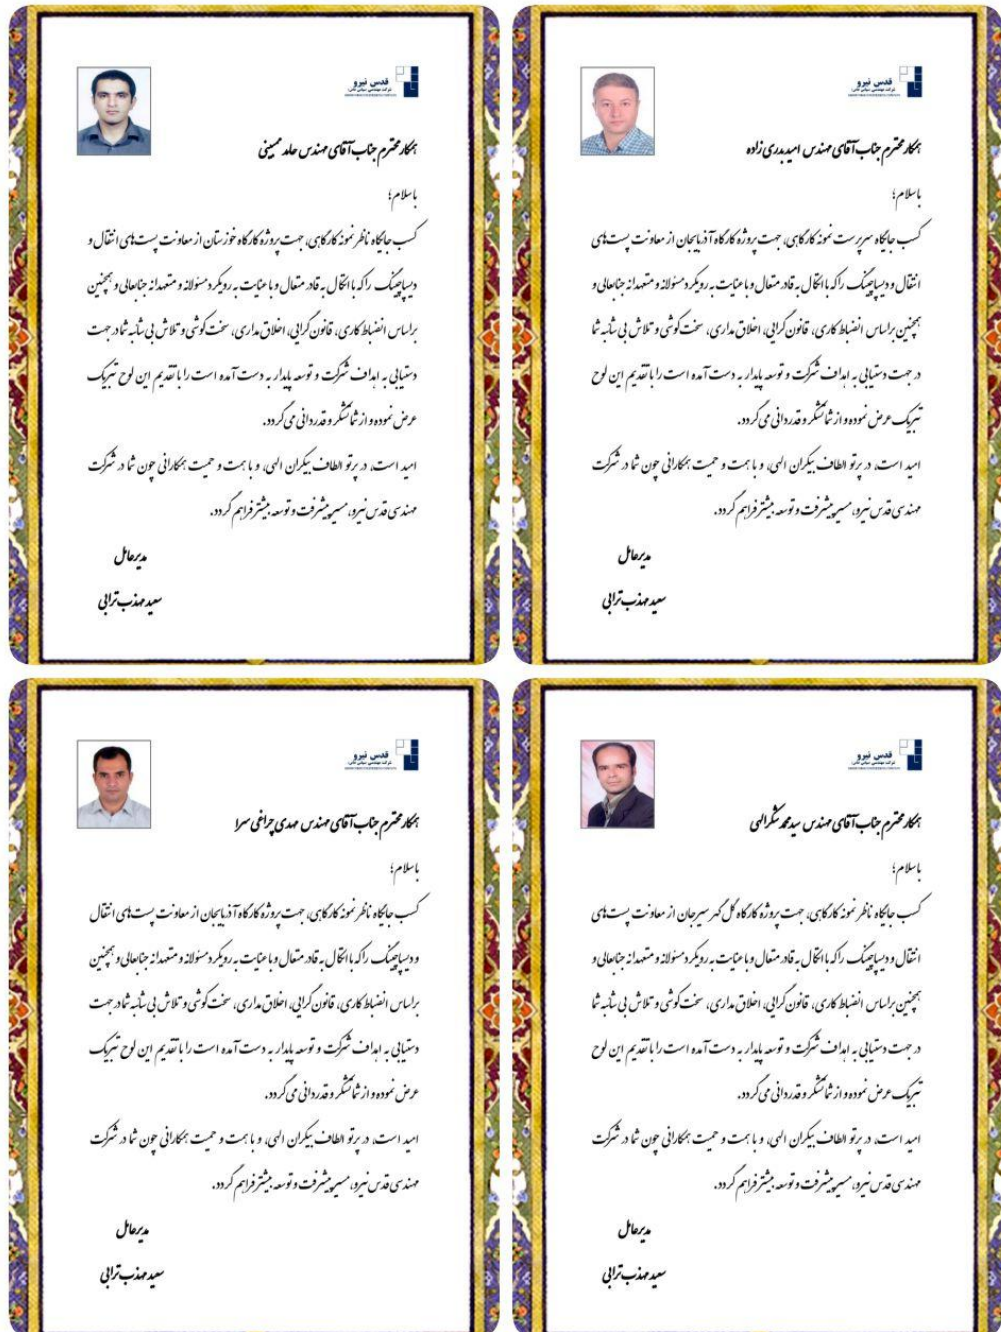 قدس نیرو
همکار محترم جناب آقای مهندس امید بدری زاده
باسلام؛
کسب جایگاه سرپرست نمونه کارگاهی، جهت پروژه کارگاه آذربایجان از معاونت پست‌های
انتقال و دیسپاچینگ را که با اتکال به قادر متعال و با عنایت به رویکرد مسئولانه و متعهدانه جنابعالی و
همچنین براساس انضباط کاری، قانون گرایی، اخلاق مداری، سخت کوشی و تلاش بی شائبه شما
در جهت دستیابی به اهداف شرکت و توسعه پایدار به دست آمده است را با تقدیم این لوح
تبریک عرض نموده و از شما تشکر و قدردانی می گردد.
امید است، در پرتو الطاف بیکران الهی، و با همت و حمیت همکارانی چون شما در شرکت
مهندسی قدس نیرو، مسیر پیشرفت و توسعه بیشتر فراهم گردد.
مدیرعامل
سعید مهذب ترابی
قدس نیرو
همکار محترم جناب آقای مهندس حامد ممبینی
باسلام؛
کسب جایگاه ناظر نمونه کارگاهی، جهت پروژه کارگاه خوزستان از معاونت پست‌های انتقال و
دیسپاچینگ را که با اتکال به قادر متعال و با عنایت به رویکرد مسئولانه و متعهدانه جنابعالی و همچنین
براساس انضباط کاری، قانون گرایی، اخلاق مداری، سخت کوشی و تلاش بی شائبه شما در جهت
دستیابی به اهداف شرکت و توسعه پایدار به دست آمده است را با تقدیم این لوح تبریک
عرض نموده و از شما تشکر و قدردانی می گردد.
امید است، در پرتو الطاف بیکران الهی، و با همت و حمیت همکارانی چون شما در شرکت
مهندسی قدس نیرو، مسیر پیشرفت و توسعه بیشتر فراهم گردد.
مدیرعامل
سعید مهذب ترابی
قدس نیرو
همکار محترم جناب آقای مهندس سید محمد شکرالهی
باسلام؛
کسب جایگاه ناظر نمونه کارگاهی، جهت پروژه کارگاه گل گهر سیرجان از معاونت پست‌های
انتقال و دیسپاچینگ را که با اتکال به قادر متعال و با عنایت به رویکرد مسئولانه و متعهدانه جنابعالی و
همچنین براساس انضباط کاری، قانون گرایی، اخلاق مداری، سخت کوشی و تلاش بی شائبه شما
در جهت دستیابی به اهداف شرکت و توسعه پایدار به دست آمده است را با تقدیم این لوح
تبریک عرض نموده و از شما تشکر و قدردانی می گردد.
امید است، در پرتو الطاف بیکران الهی، و با همت و حمیت همکارانی چون شما در شرکت
مهندسی قدس نیرو، مسیر پیشرفت و توسعه بیشتر فراهم گردد.
مدیرعامل
سعید مهذب ترابی
قدس نیرو
همکار محترم جناب آقای مهندس مهدی چراغی سرا
باسلام؛
کسب جایگاه ناظر نمونه کارگاهی، جهت پروژه کارگاه آذربایجان از معاونت پست‌های انتقال
و دیسپاچینگ را که با اتکال به قادر متعال و با عنایت به رویکرد مسئولانه و متعهدانه جنابعالی و همچنین
براساس انضباط کاری، قانون گرایی، اخلاق مداری، سخت کوشی و تلاش بی شائبه شما در جهت
دستیابی به اهداف شرکت و توسعه پایدار به دست آمده است را با تقدیم این لوح تبریک
عرض نموده و از شما تشکر و قدردانی می گردد.
امید است، در پرتو الطاف بیکران الهی، و با همت و حمیت همکارانی چون شما در شرکت
مهندسی قدس نیرو، مسیر پیشرفت و توسعه بیشتر فراهم گردد.
مدیرعامل
سعید مهذب ترابی